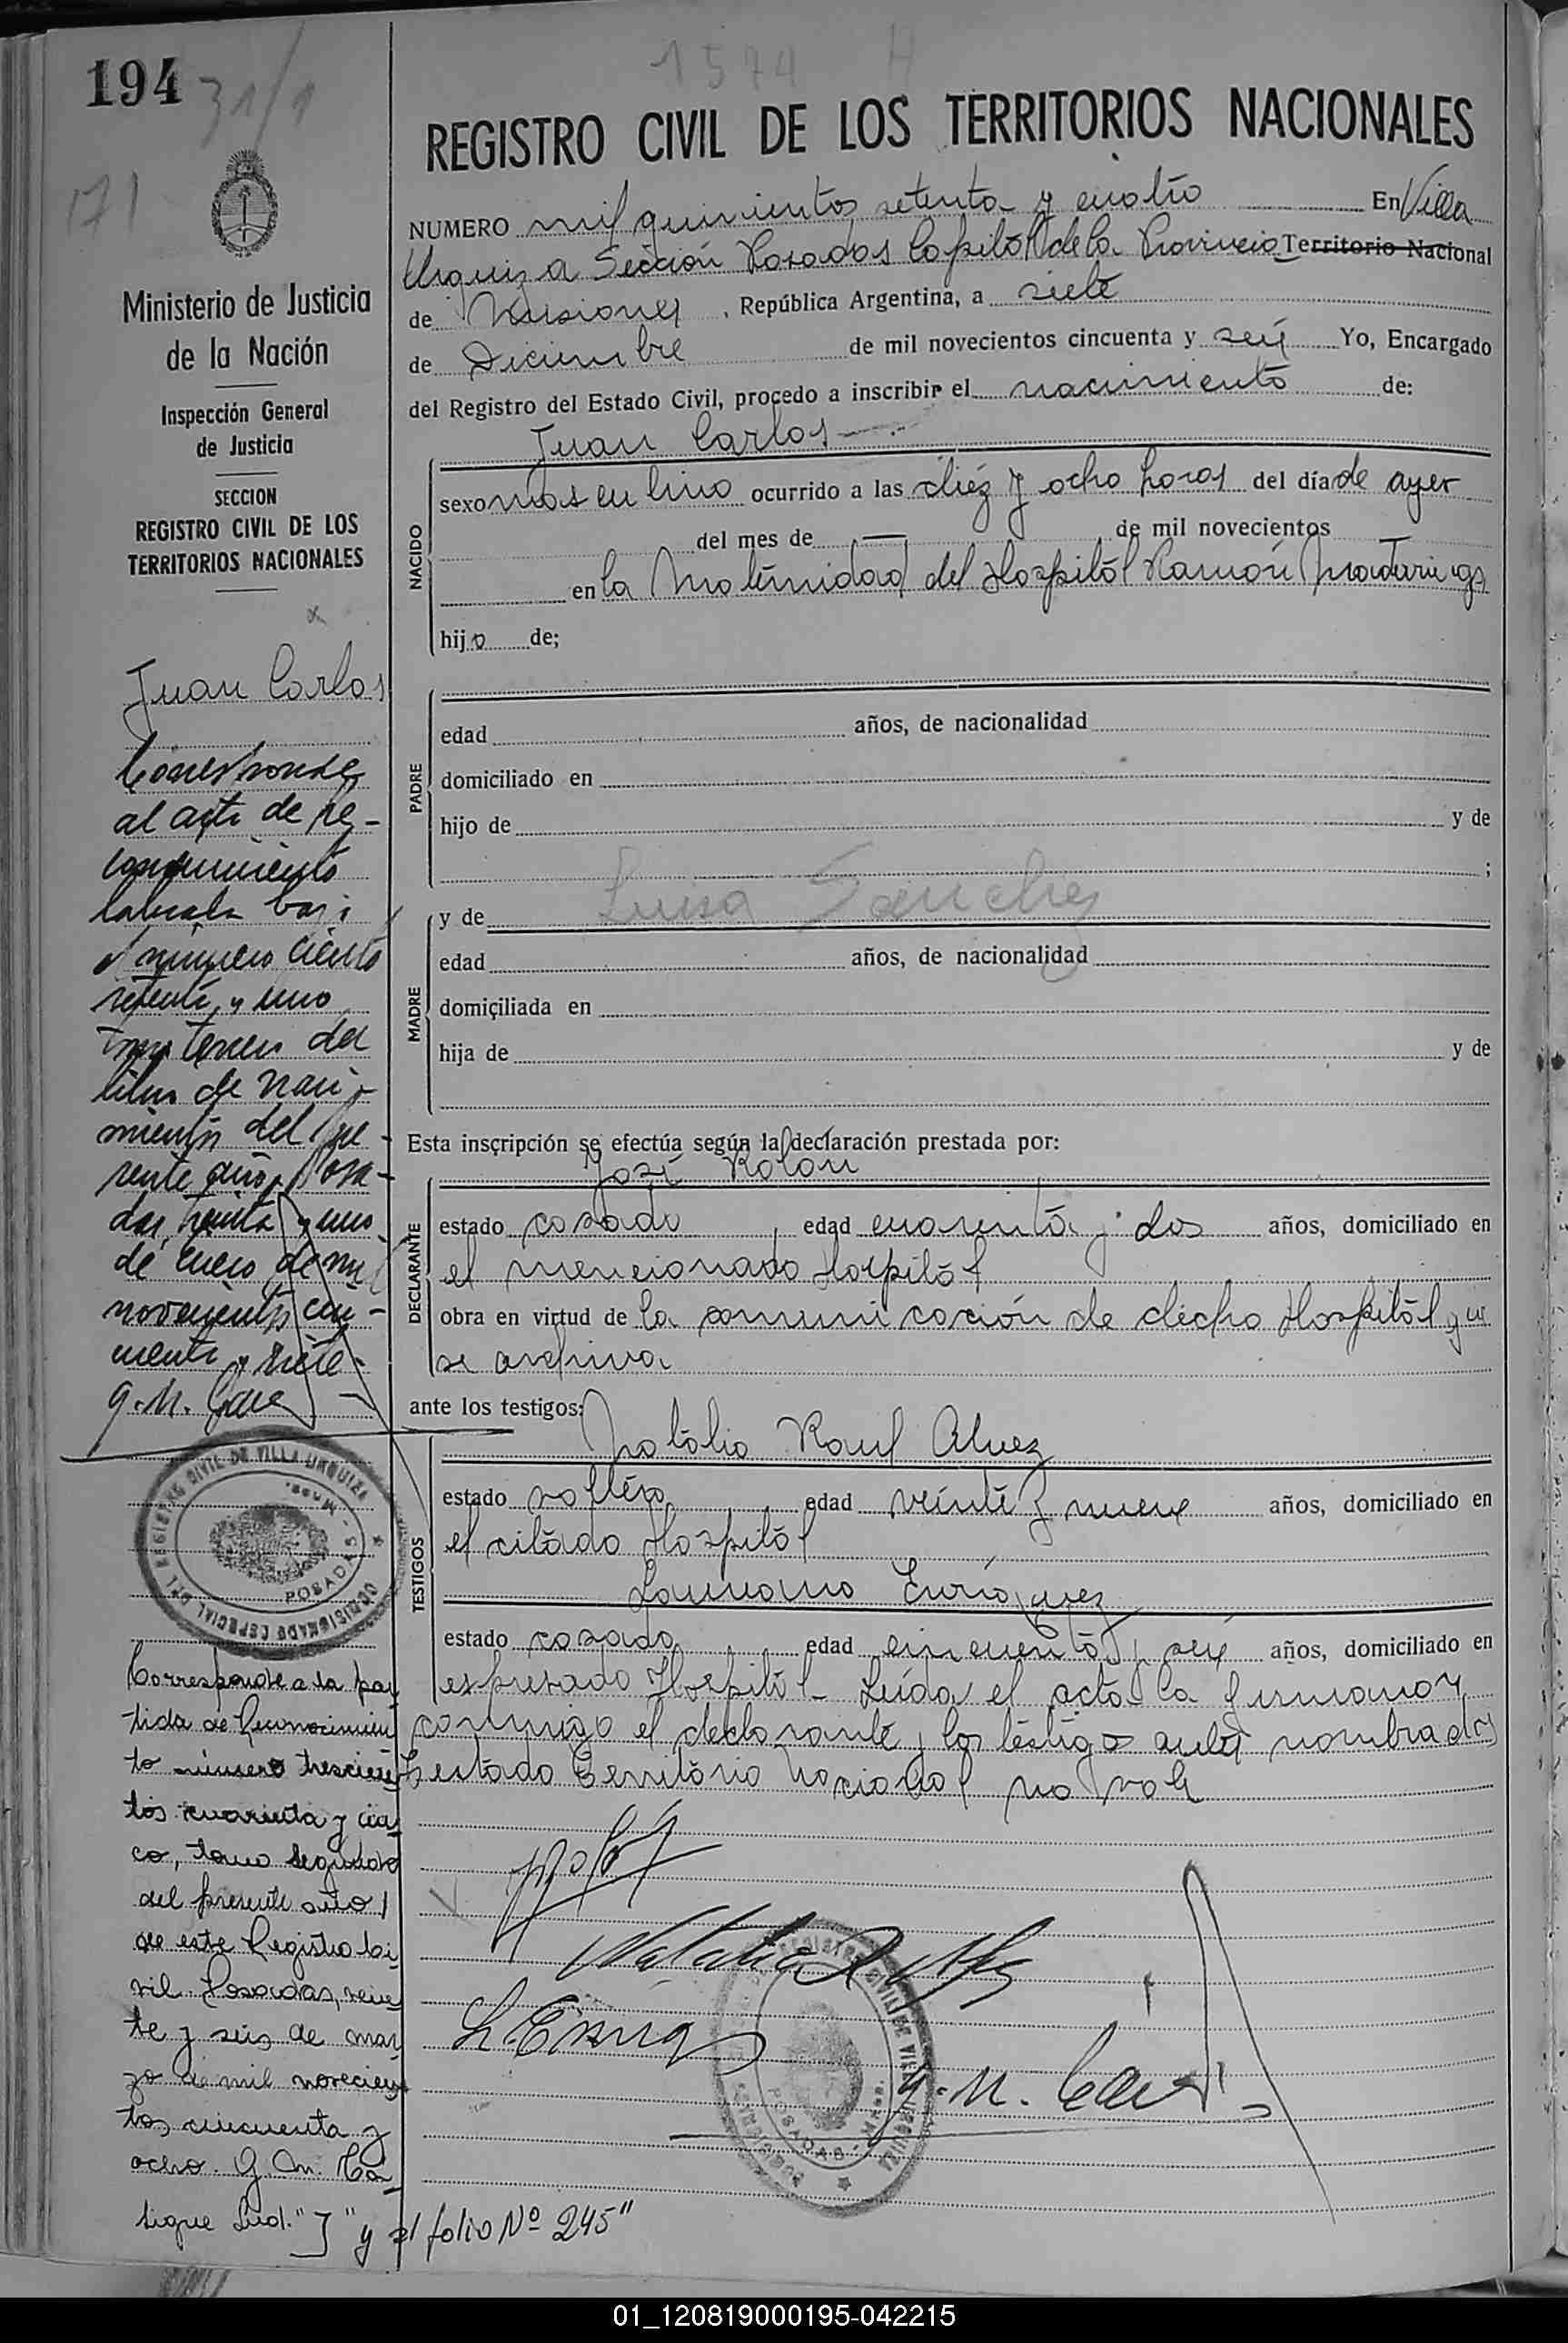 194
31/1
1574 H
171
REGISTRO CIVIL DE LOS TERRITORIOS NACIONALES
NUMERO mil quinientos setenta y cuatro En Villa
Urquiza Sección Posadas Capital de la Provincia Territorio Nacional
de Misiones, República Argentina, a siete
de Diciembre de mil novecientos cincuenta y seis Yo, Encargado
del Registro del Estado Civil, procedo a inscribir el nacimiento de:
Juan Carlos
NACIDO
sexo masculino ocurrido a las diez y ocho horas del día de ayer
del mes de — de mil novecientos
en la Maternidad del Hospital Ramón Madariaga
hijo de;
PADRE
edad años, de nacionalidad
domiciliado en
hijo de y de
;
MADRE
y de Luisa Sanchez
edad años, de nacionalidad
domiciliada en
hija de y de
Esta inscripción se efectúa según la declaración prestada por:
José Rolon
DECLARANTE
estado casado, edad cuarenta y dos años, domiciliado en
el mencionado Hospital
obra en virtud de la comunicación de dicho Hospital que
se archiva
ante los testigos:
Natalio Raul Alvez
TESTIGOS
estado soltero edad veinte y nueve años, domiciliado en
el citado Hospital
Enriquez
estado casado edad cincuenta y seis años, domiciliado en
expresado Hospital Leída el acta la firmaron
conmigo el declarante y los testigos antes nombrados
Testado Territorio Nacional no vale
G. M. Ca
Ministerio de Justicia
de la Nación
Inspección General
de Justicia
SECCION
REGISTRO CIVIL DE LOS
TERRITORIOS NACIONALES
Juan Carlos
Corresponde
al acta de re-
conocimiento
labrada bajo
el número ciento
setenta y uno
tomo tercero del
libro de naci-
mientos del pre-
sente año, Posa-
das, treinta y uno
de enero de mil
novecientos cin-
cuenta y siete
G. M.
REGISTRO CIVIL DE VILLA URQUIZA
COMISIONADO ESPECIAL DEL
POSADAS - Mnes.
Corresponde a la par
tida de Reconocimien
to número trescien
tos cuarenta y cin
co, tomo segundo
del presente año
de este Registro Ci
vil. Posadas, vein
te y seis de mar
zo de mil novecien
tos cincuenta y
ocho. G. M. Ca
" y al folio Nº 245"
01_120819000195-042215